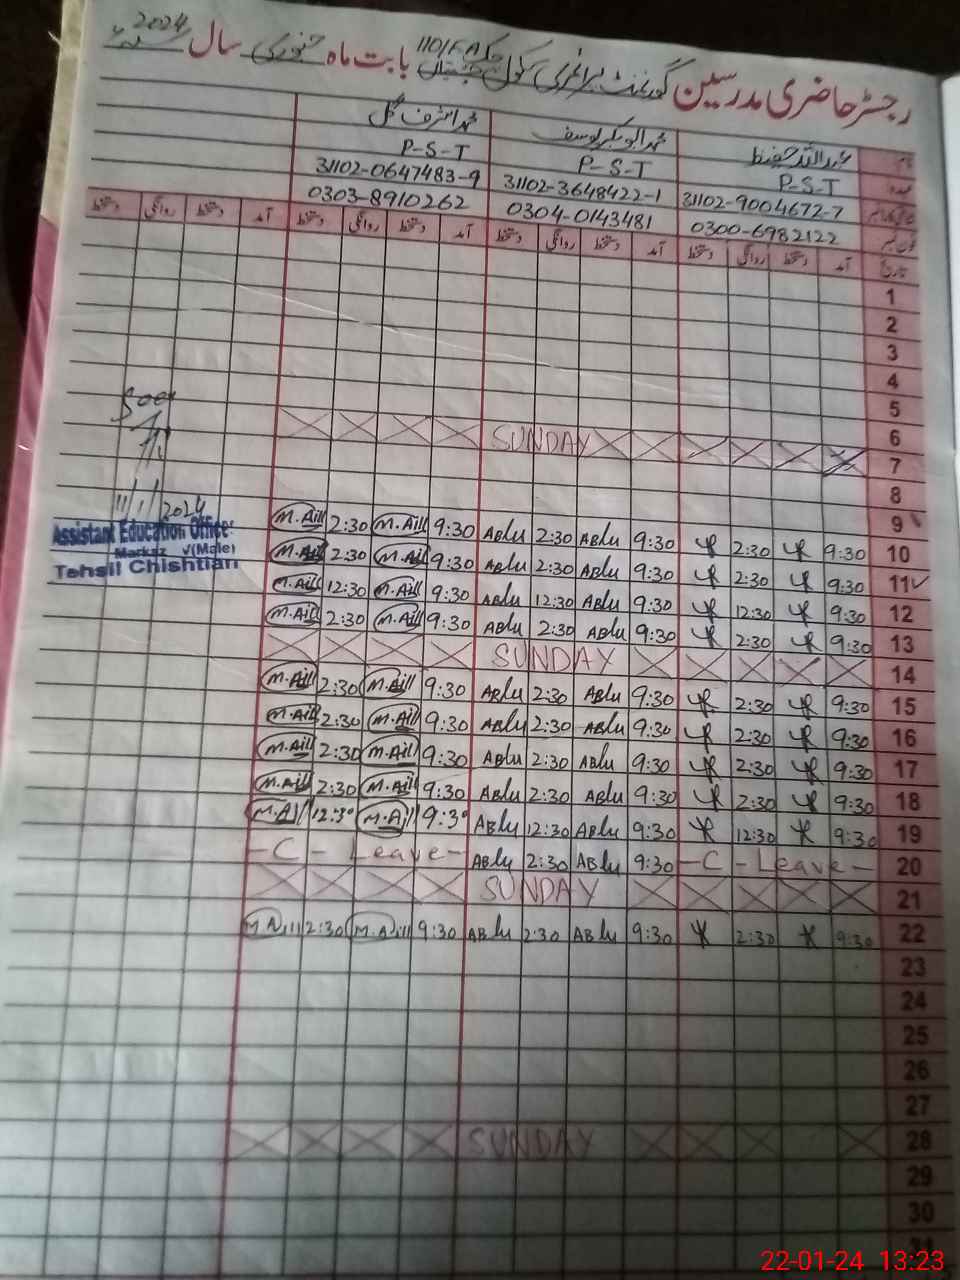 رجسٹر حاضری مدرسین گورنمنٹ پرائمری سکول چک 110/F.A بابت ماہ جنوری سال 2024
نام عبدالله حفیظ محمد ابوبکر یوسف محمد اشرف گل
عہدہ P-S-T P-S-T P-S-T
31102-9004672-7 31102-3648422-1 31102-0647483-9
فون نمبر 0300-6982122 0304-0143481 0303-8910262
تاریخ آمد دستخط روانگی دستخط آمد دستخط روانگی دستخط آمد دستخط روانگی دستخط آمد دستخط روانگی دستخط
1
2
3
4
5
6
7 SUNDAY
8
9
10 9:30 2:30 9:30 ABlu 2:30 ABlu 9:30 M.Aill 2:30 M.Aill
11 9:30 2:30 9:30 ABlu 2:30 ABlu 9:30 M.Aill 2:30 M.Aill
12 9:30 12:30 9:30 ABlu 12:30 ABlu 9:30 M.Aill 12:30 M.Aill
13 9:30 2:30 9:30 ABlu 2:30 ABlu 9:30 M.Aill 2:30 M.Aill
14 SUNDAY
15 9:30 2:30 9:30 ABlu 2:30 ABlu 9:30 M.Aill 2:30 M.Aill
16 9:30 2:30 9:30 ABlu 2:30 ABlu 9:30 M.Aill 2:30 M.Aill
17 9:30 2:30 9:30 ABlu 2:30 ABlu 9:30 M.Aill 2:30 M.Aill
18 9:30 2:30 9:30 ABlu 2:30 ABlu 9:30 M.Aill 2:30 M.Aill
19 9:30 12:30 9:30 ABlu 12:30 ABlu 9:30 M.Aill 12:30 M.Aill
20 -C-Leave- 9:30 ABlu 2:30 ABlu -C-Leave-
21 SUNDAY
22 9:30 2:30 9:30 ABlu 2:30 ABlu 9:30 M.Aill 2:30 M.Aill
23
24
25
26
27
28 SUNDAY
29
30
31
11/1/2024
Assistant Education Officer
Markaz (Male)
Tehsil Chishtian
22-01-24 13:23